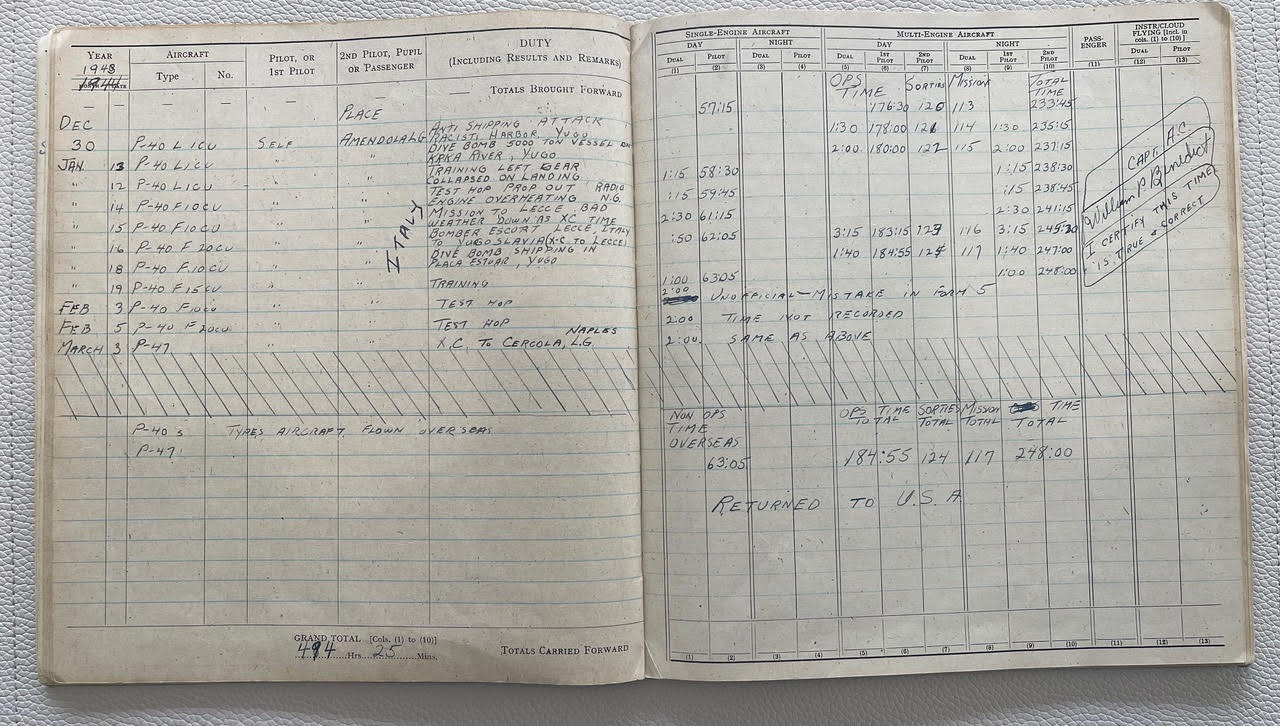 YEAR AIRCRAFT PILOT, 2ND PILOT, PUPIL DUTY
1943 Type No. 1ST PILOT OR PASSENGER (INCLUDING RESULTS AND REMARKS)
1944
— — — — — — TOTALS BROUGHT FORWARD
PLACE
DEC ANTI SHIPPING ATTACK
30 P-40 L1CU SELF AMENDOLA L.G. HARBOR, YUGO
DIVE BOMB 5000 TON VESSEL ON
JAN 13 P-40 L1CU " " KRKA RIVER, YUGO
TRAINING LEFT GEAR
" 12 P-40 L1CU " " COLLAPSED ON LANDING
TEST HOP PROP OUT RADIO
" 14 P-40 F10CU " " ENGINE OVERHEATING N.G.
MISSION TO LECCE BAD
" 15 P-40 F10CU " " WEATHER DOWN AS XC TIME
BOMBER ESCORT LECCE, ITALY
" 16 P-40 F20CU " " TO YUGOSLAVIA (X-C TO LECCE)
DIVE BOMB SHIPPING IN
" 18 P-40 F10CU " " PLACA ESTUAR, YUGO
ITALY
" 19 P-40 F15CU " " TRAINING
FEB 3 P-40 F10CU " TEST HOP
FEB 5 P-40 F20CU " TEST HOP
MARCH 3 P-47 X.C. TO CERCOLA, L.G. NAPLES
P-40s TYPES AIRCRAFT FLOWN OVERSEAS
P-47
GRAND TOTAL [Cols. (1) to (10)]
494 Hrs 25 Mins.
TOTALS CARRIED FORWARD
SINGLE-ENGINE AIRCRAFT MULTI-ENGINE AIRCRAFT PASS-ENGER INSTR/CLOUD FLYING [Incl. in cols. (1) to (10)]
DAY NIGHT DAY NIGHT
DUAL PILOT DUAL PILOT DUAL 1ST PILOT 2ND PILOT DUAL 1ST PILOT 2ND PILOT DUAL PILOT
(1) (2) (3) (4) (5) (6) (7) (8) (9) (10) (11) (12) (13)
OPS TIME SORTIES MISSION TOTAL TIME
57:15 176:30 120 113 233:45
1:30 178:00 121 114 1:30 235:15
2:00 180:00 122 115 2:00 237:15
1:15 58:30 1:15 238:30
:15 59:45 :15 238:45
2:30 61:15 2:30 241:15
:50 62:05 3:15 183:15 123 116 3:15
1:40 184:55 124 117 1:40 247:00
1:00 63:05 1:00 248:00
CAPT. A.C.
William P Benedict
I CERTIFY THIS TIME
IS TRUE & CORRECT
2:00 UNOFFICIAL — MISTAKE IN FORM 5
2:00 TIME NOT RECORDED
2:00 SAME AS ABOVE
NON OPS TIME OVERSEAS OPS TIME TOTAL SORTIES TOTAL MISSION TOTAL TIME TOTAL
63:05 184:55 124 117 248:00
RETURNED TO U.S.A
(1) (2) (3) (4) (5) (6) (7) (8) (9) (10) (11) (12) (13)